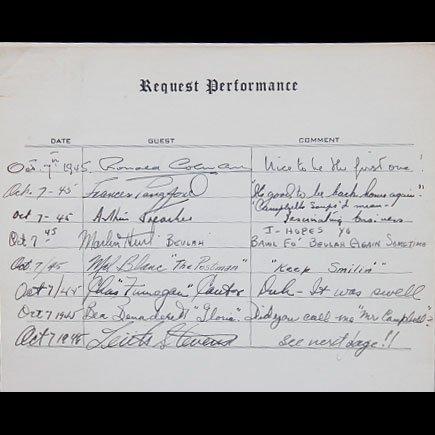 Request Performance
DATE GUEST COMMENT
Oct. 7th 1945. Ronald Colman Nice to be the first one!
Oct. 7-45 Frances Langford "It's good to be back home again"
Oct 7-45 Arthur Treacher "Campbells Soups'd mean - fascinating business
Oct 7 45 Marlin Hurt BEULAH I-HOPES YO BAWL FO' BEULAH AGAIN SOMETIME
Oct 7/45 Mel Blanc "The Postman" "Keep Smilin'"
Oct 7/45 Chas "Finnegan" Cantor Duh - It was swell
Oct 7 1945 Bea Benaderet "Gloria" Did you call me "Mr Campbell"?
Oct 7 1945 Leith Stevens see next page!!